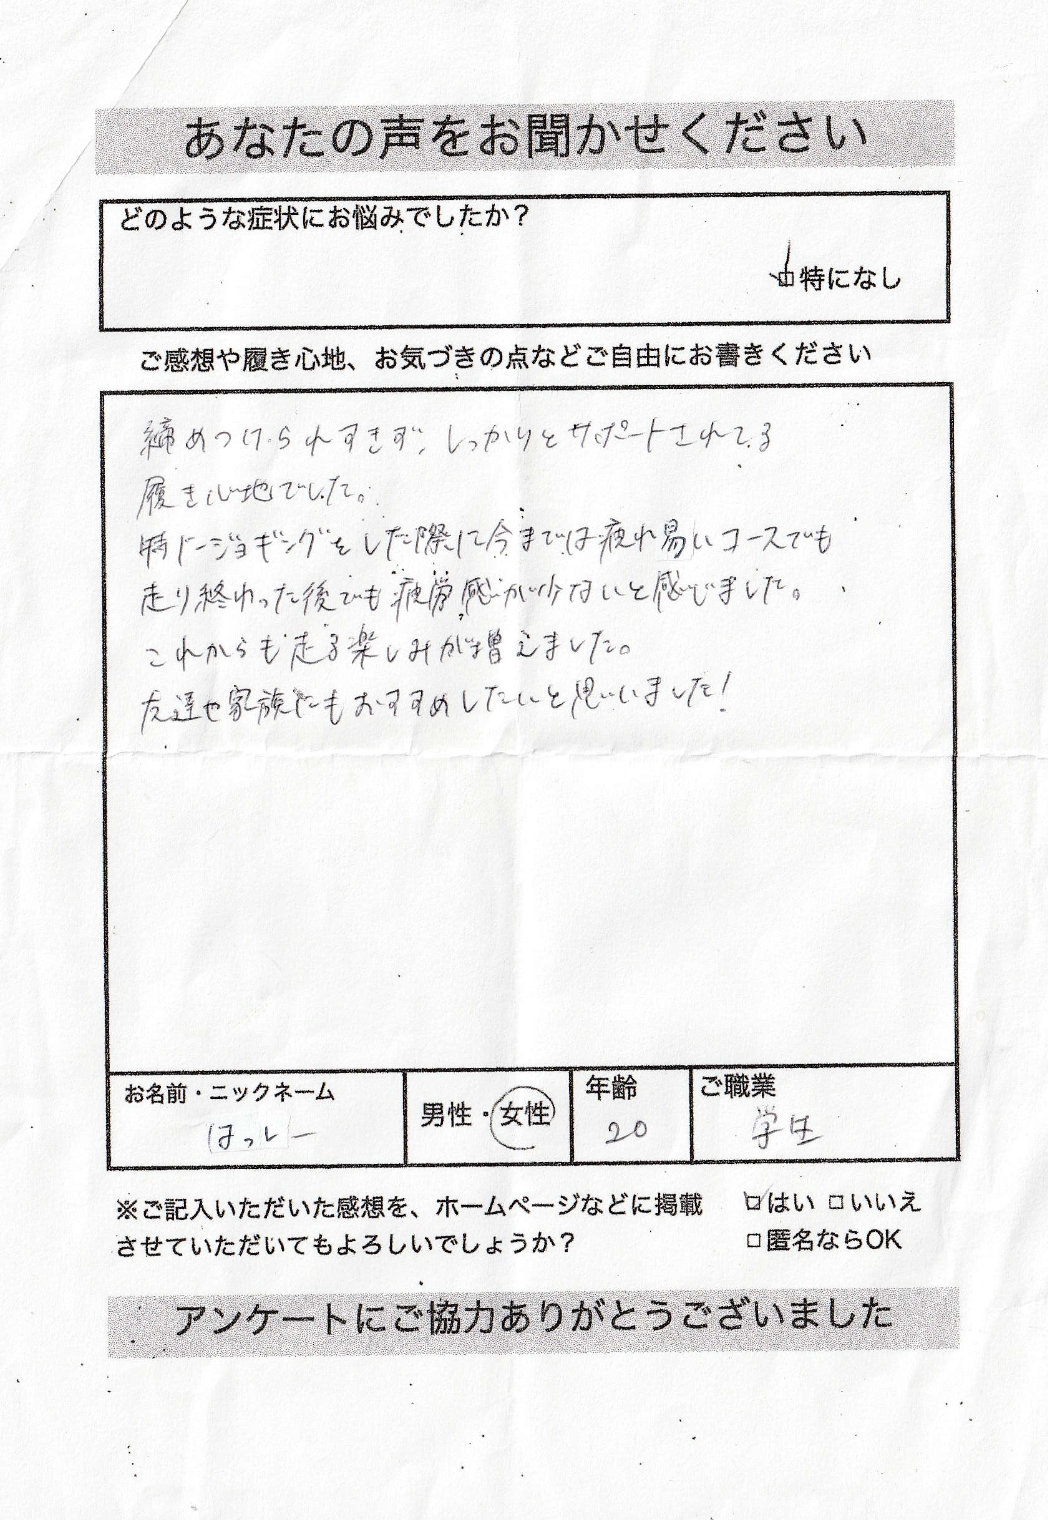 あなたの声をお聞かせください
どのような症状にお悩みでしたか？
特になし
ご感想や履き心地、お気づきの点などご自由にお書きください
締めつけられすぎず、しっかりとサポートされてる
履き心地でした。
特にジョギングをした際に今までは疲れ易いコースでも
走り終わった後でも疲労感が少ないと感じました。
これからも走る楽しみが増えました。
友達や家族にもおすすめしたいと思いました！
お名前・ニックネーム
はっしー
男性・女性
年齢
20
ご職業
学生
※ご記入いただいた感想を、ホームページなどに掲載
させていただいてもよろしいでしょうか？
□はい □いいえ
□匿名ならOK
アンケートにご協力ありがとうございました